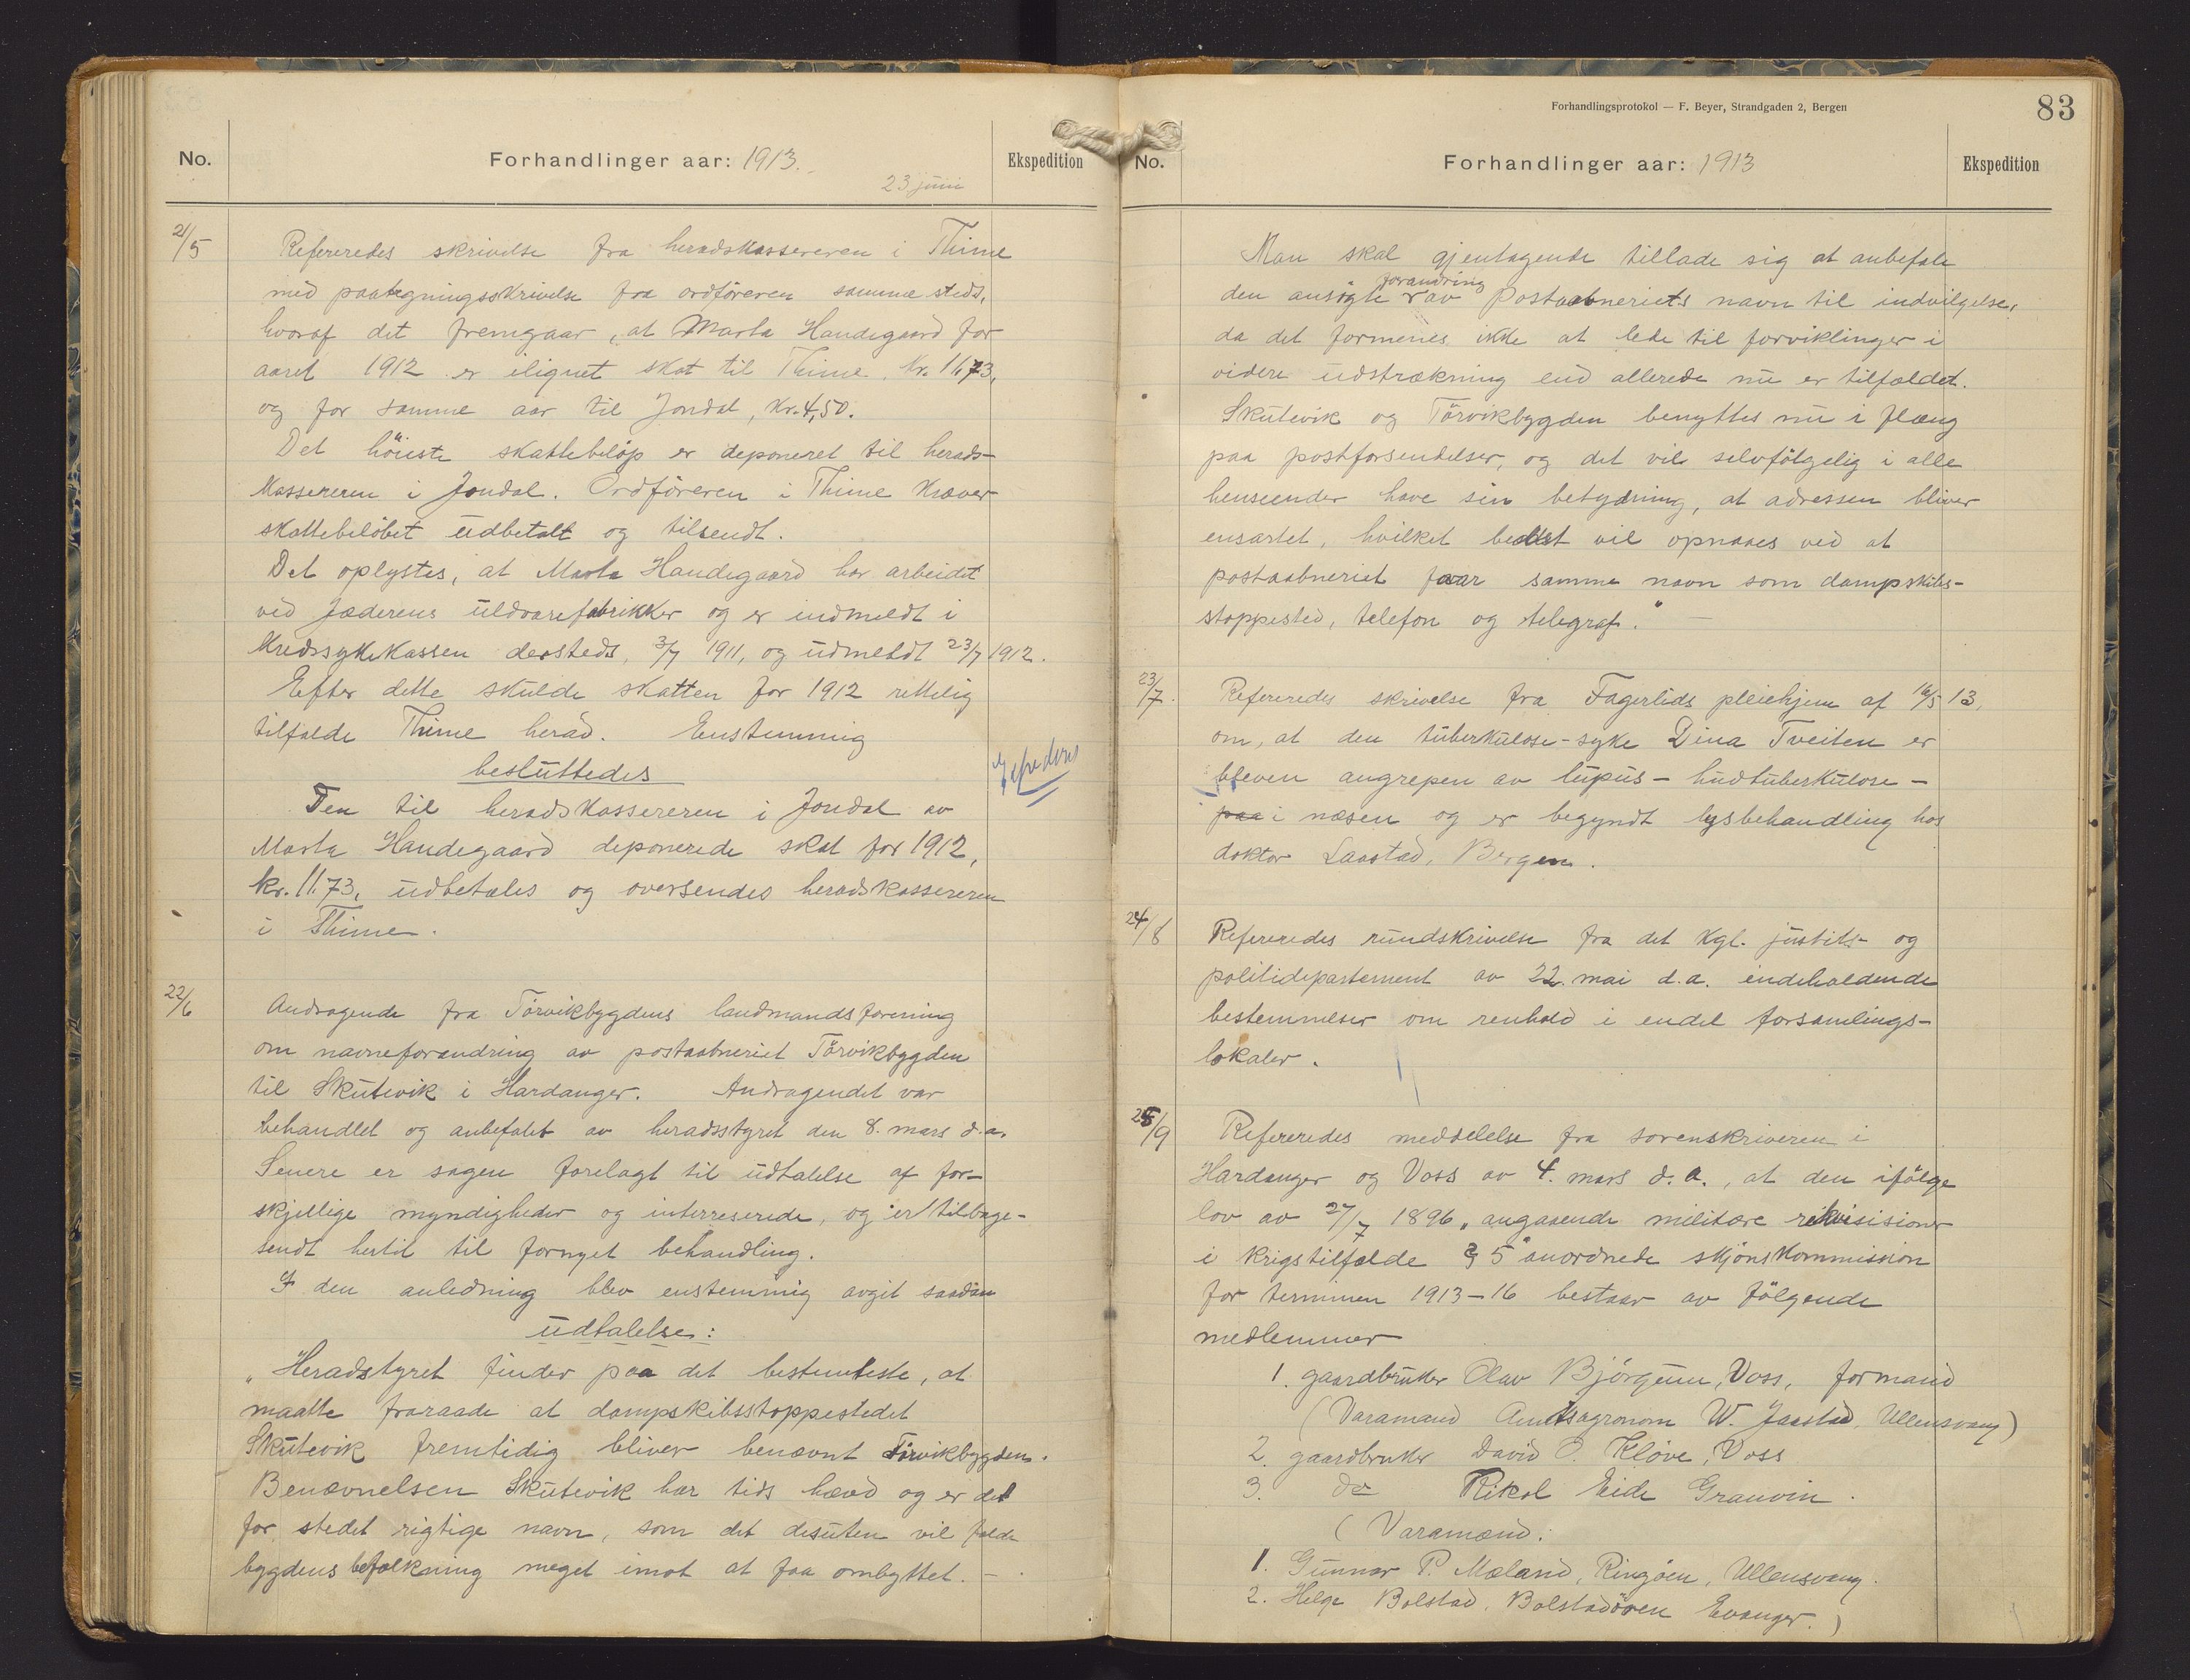 No.
Forhandlinger aar: 1913.
Ekspedition
23 juni
21/5
Refereredes skrivelse fra heradskassereren i Thime
med paategningsskrivelse fra ordföreren samme steds,
hvoraf det fremgaar, at Marta Handegaard for
aaret 1912 er ilignet skat til Thime, Kr. 11,73,
og for samme aar til Jondal, Kr. 4,50.
Det höieste skattebelöp er deponeret til herads-
kassereren i Jondal. Ordföreren i Thime kræver
skattebelöbet udbetalt og tilsendt.
Det oplystes, at Marta Handegaard har arbeidet
ved Jæderens uldvarefabrikker og er indmeldt i
Kredssykekassen dersteds, 3/7 1911, og udmeldt 23/7 1912.
Efter dette skulde skatten for 1912 rettelig
tilfalde Thime herad. Enstemmig
besluttedes
Den til heradskassereren i Jondal av
Marta Handegaard deponerede skat for 1912,
kr. 11.73, udbetales og oversendes heradskassereren
i Thime.
22/6
Andragende fra Törvikbygdens landmandsforening
om navneforandring av postaabneriet Törvikbygden
til Skutevik i Hardanger. Andragendet var
behandlet og anbefalet av heradsstyret den 8. mars d.a.
Senere er sagen forelagt til udtalelse af for-
skjellige myndigheder og interreserede, og er tilbage-
sendt hertil til fornyet behandling.
I den anledning blev enstemmig avgit saadan
udtalelse:
„Heradstyret finder paa det bestemteste, at
maatte fraraade at dampskibsstoppestedet
Skutevik fremtidig bliver benævnt Törvikbygden.
Benævnelsen Skutevik har tids hævd og er det
for stedet rigtige navn, som det desuten vil falde
bygdens befolkning meget imot at faa ombyttet. –
Forhandlingsprotokol — F. Beyer, Strandgaden 2, Bergen
83
No.
Forhandlinger aar: 1913
Ekspedition
Man skal gjentagende tillade sig at anbefale
forandring
den ansögte av postaabneriets navn til indvilgelse,
da det formenes ikke at lede til forviklinger i
videre udstrækning end allerede nu er tilfældet.
Skutevik og Törvikbygden benyttes nu i flæng
paa postforsendelser, og det vil selvfölgelig i alle
henseender have sin betydning, at adressen bliver
ensartet, hvilket bedst vil opnaaes ved at
postaabneriet faar samme navn som dampskibs-
stoppested, telefon og telegraf." –
23/7.
Refereredes skrivelse fra Fagerlids pleiehjem af 16/5 13,
om, at den tuberkulose-syke Dina Tveiten er
bleven angrepen av lupus – hudtuberkulose –
paa i næsen og er begyndt lysbehandling hos
doktor Laastad, Bergen.
24/8
Refereredes rundskrivelse fra det kgl. justits- og
politidepartement av 22. mai d.a. indeholdende
bestemmelser om renhold i endel forsamlings-
lokaler.
25/9
Refereredes meddelelse fra sorenskriveren i
Hardanger og Voss av 4. mars d.a., at den ifölge
lov av 27/7 1896 „angaaende militære rekvisisioner
i krigstilfælde § 5" anordnede skjönskommission
for terminen 1913–16 bestaar av fölgende
medlemmer
1. gaardbruker Olav Björgum, Voss, formand
(Varamand Amtsagronom W. Jaastad, Ullensvang)
2. gaardbruker David O. Klöve, Voss
3. do Rikol Eide Granvin.
(Varamænd:
1. Gunnar P. Mæland, Ringöen, Ullensvang.
2. Helge Bolstad, Bolstadören Evanger.)